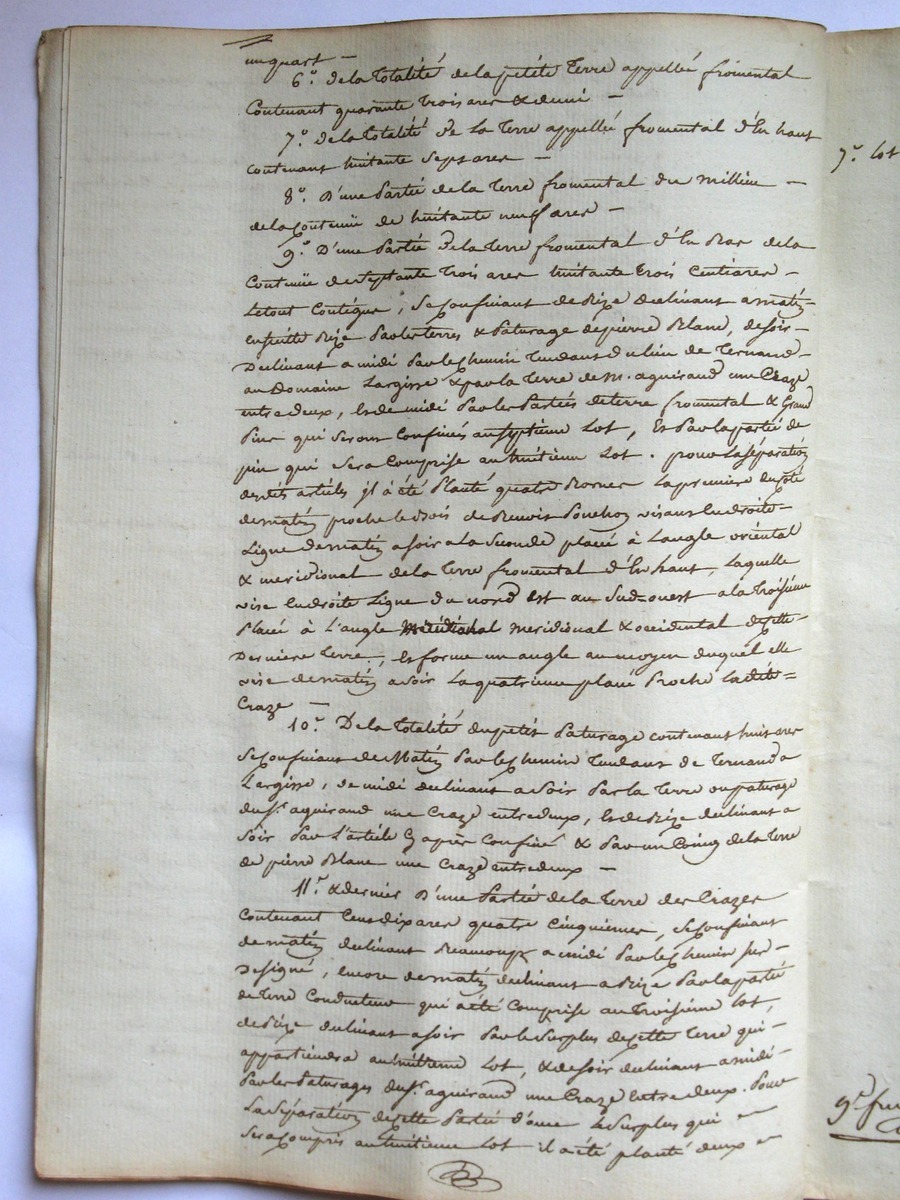 un quart —
6.° de la totalité de la petite terre appellée fromental
contenant quarante trois ares & demi —
7.° de la totalité de la terre appellée fromental d'En haut
contenant huitante sept ares —
8.° D'une Partie de la terre fromental du millieu —
de la Contenüe de huitante neuf ares —
9.° D'une Partie de la terre fromental d'En Bas de la
Contenüe de septante trois ares huitante trois Centiares —
Le tout Contigue, Se Confinant de Bize declinant a matin
ensuitte Bize Par les terres & Paturage de pierre Blanc, de soir
Declinant a midi Par le Chemin Tendant du lieu de Ternand
au Domaine Largisse & par la terre de M. aguiraud une Craze
entre deux, & de midi Par les Parties de terre fromental & Grand
Pin qui seront Confinés au septieme Lot, Et Par la partie de
pin qui sera Comprise au huitieme Lot. pour la séparation
desdits articles il a été Planté quatre Bornes La premiere du coté
de matin proche le Bois de Benoit Ponchon visant En droite
Ligne de matin a soir a la Seconde placée à Langle oriental
& meridional de la terre fromental d'En haut, Laquelle
vise En droite Ligne du nord Est au Sud-ouest a la troisieme
Placée à L'angle meridional & occidental de cette
Derniere terre, & forme un angle au moyen duquel elle
vise de matin a soir La quatrieme placée Proche ladite
Craze —
10.° De la totalité du petit Paturage contenant huit ares
Se Confinant de Matin Par le Chemin Tendant de Ternand a
Largisse, de midi declinant a soir Par la terre ou paturage
du S.r aguiraud une Craze entre deux, & de Bize declinant a
soir Par L'article Cy après Confiné & Par un Coing de la terre
de pierre Blanc une Craze entre deux —
11.° & dernier D'une Partie de la terre des Crazes
contenant Cent dix ares quatre Cinquiemes, Se Confinant
de matin declinant Beaucoup a midi Par le Chemin sus
Designé, encore de matin declinant a Bize Par la partie
de terre Conducteur qui a été Comprise au Troisieme Lot,
de Bize declinant a soir Par le Surplus de cette terre qui
appartiendra au huitieme Lot, & de soir declinant a midi
Par les Paturages du S.r aguiraud une Craze entre deux. Pour
La Séparation de cette Partie D'avec le Surplus qui
sera Compris au huitieme Lot il a été planté deux
7.° Lot